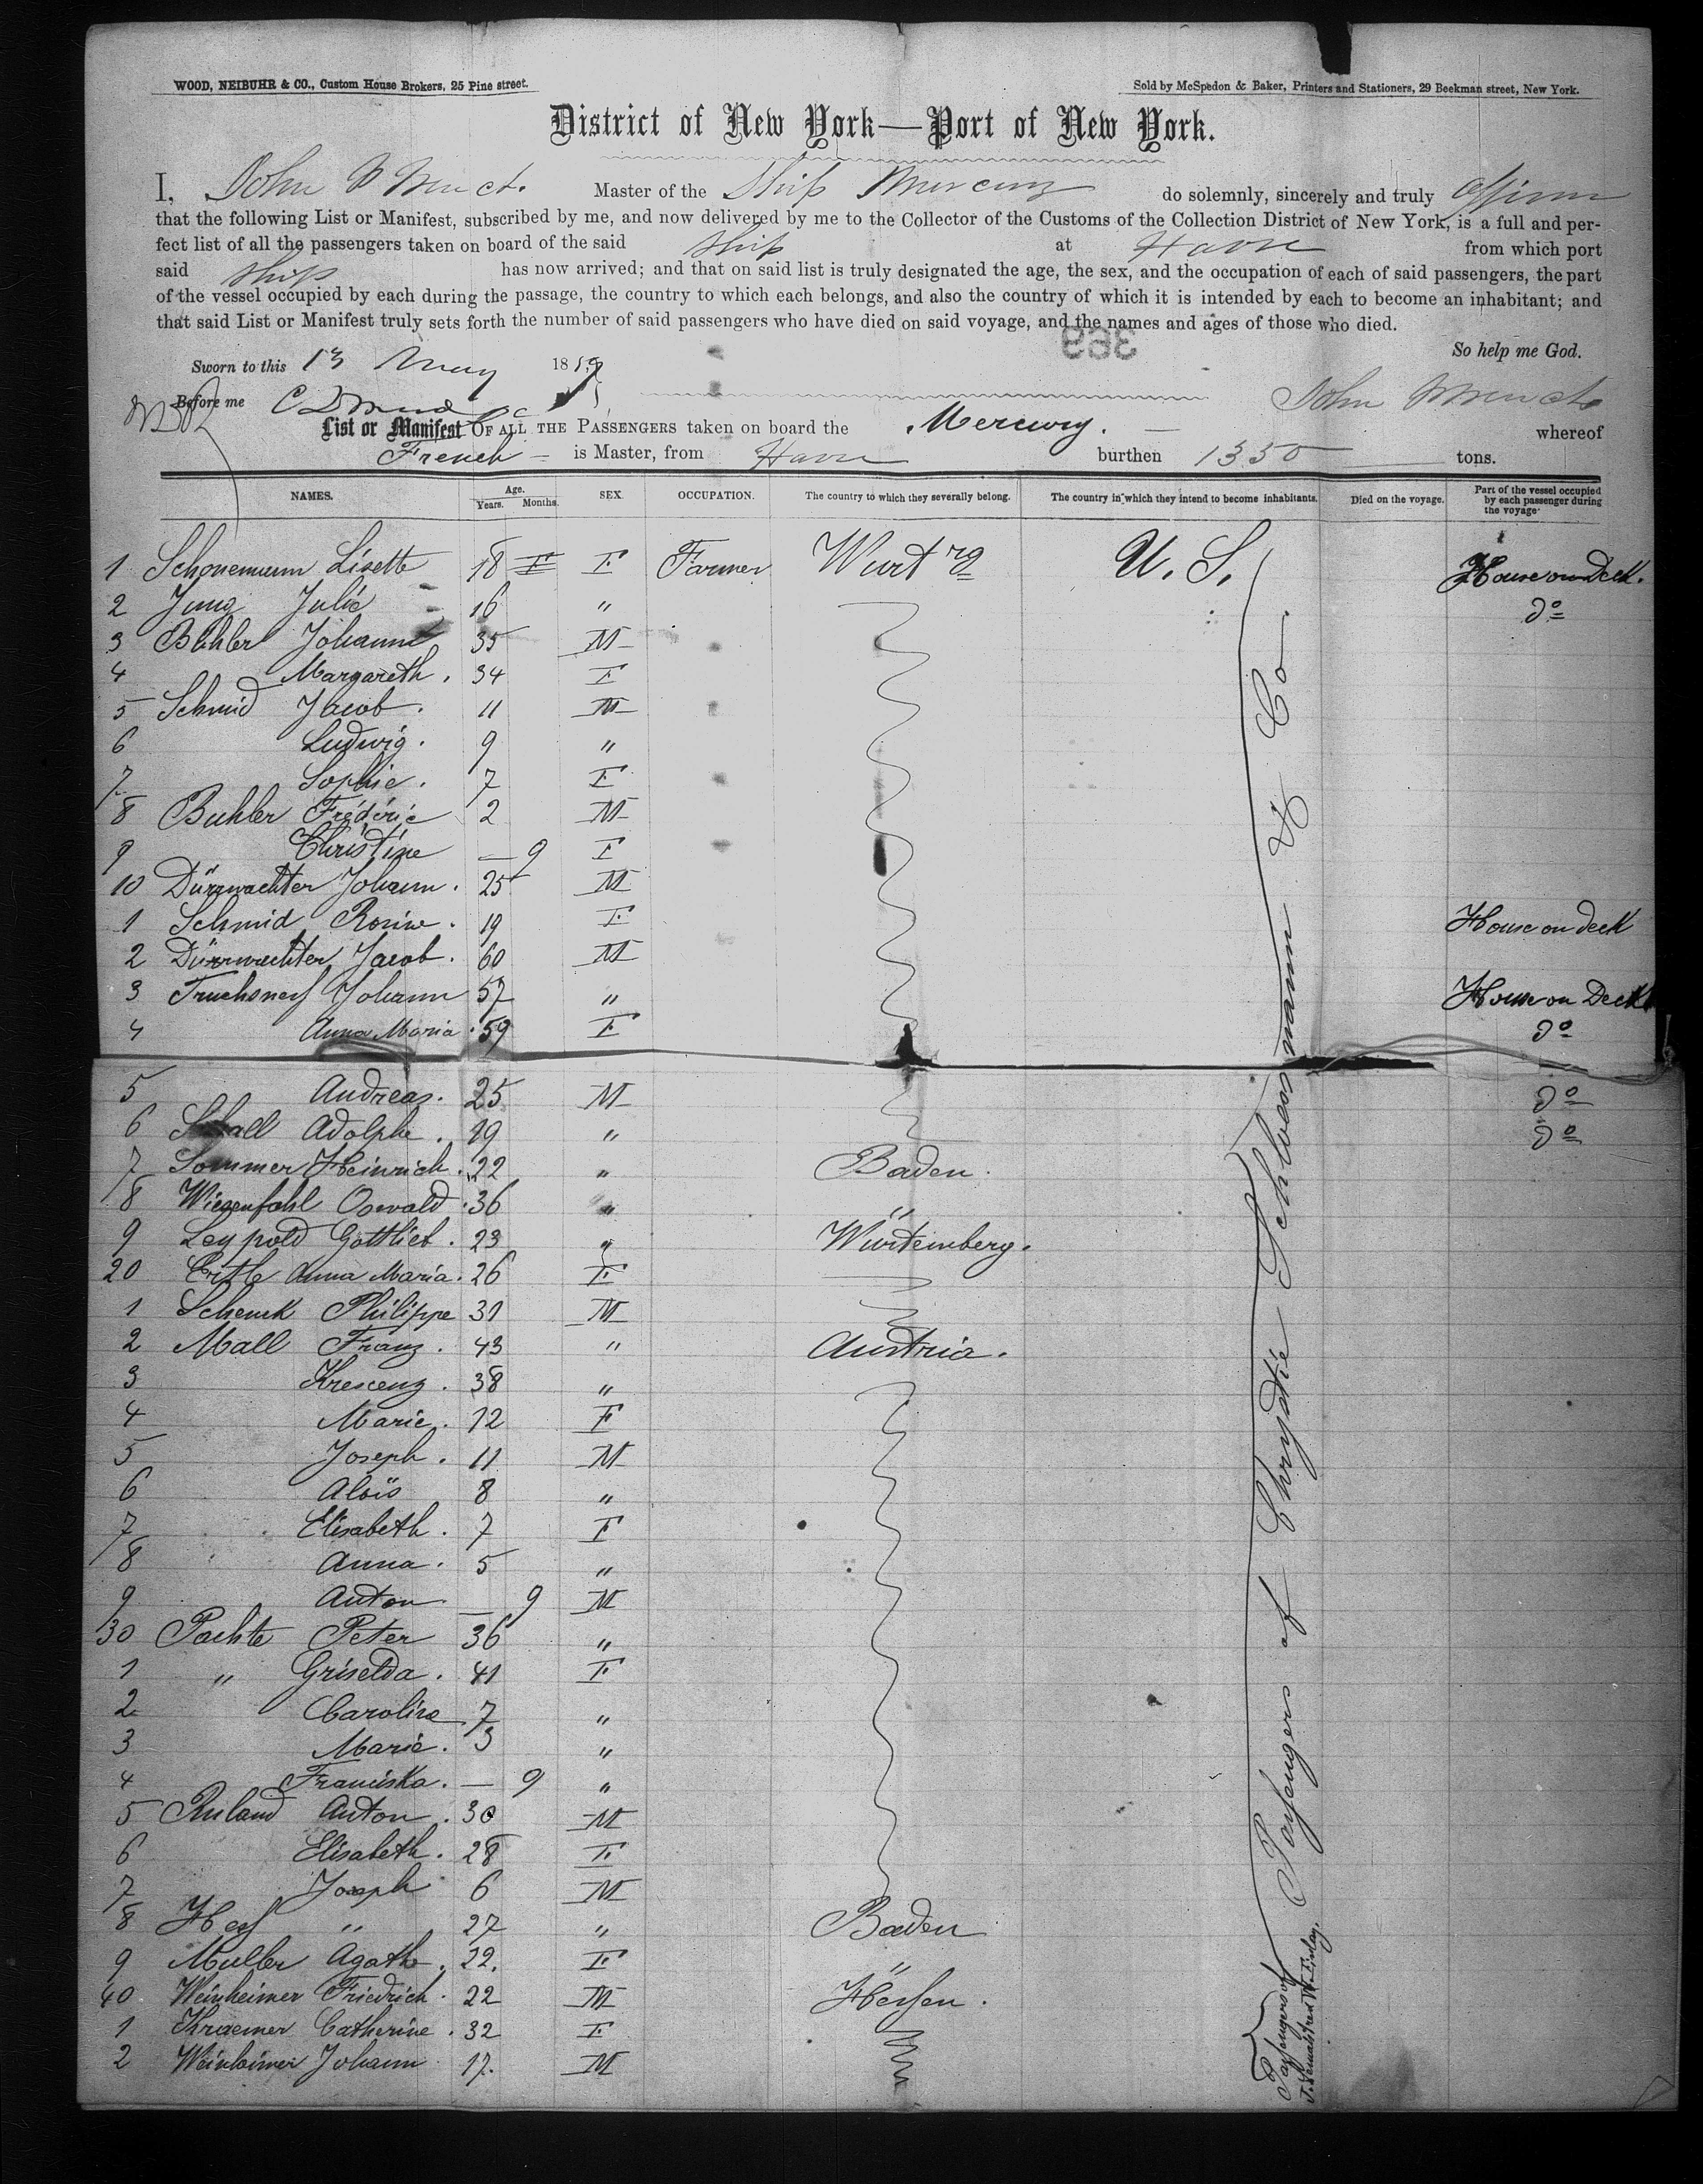 WOOD, NEIBUHR & CO., Custom House Brokers, 25 Pine street.
Sold by McSpedon & Baker, Printers and Stationers, 29 Beekman street, New York.
District of New York—Port of New York.
I, John Master of the Ship Mercury do solemnly, sincerely and truly affirm
that the following List or Manifest, subscribed by me, and now delivered by me to the Collector of the Customs of the Collection District of New York, is a full and per-
fect list of all the passengers taken on board of the said Ship at Havre from which port
said Ship has now arrived; and that on said list is truly designated the age, the sex, and the occupation of each of said passengers, the part
of the vessel occupied by each during the passage, the country to which each belongs, and also the country of which it is intended by each to become an inhabitant; and
that said List or Manifest truly sets forth the number of said passengers who have died on said voyage, and the names and ages of those who died.
369
So help me God.
Sworn to this 13 May 1859
Before me
John
List or Manifest OF ALL THE PASSENGERS taken on board the Mercury. whereof
French is Master, from Havre burthen 1350 tons.
NAMES. Age. Years. Months. SEX. OCCUPATION. The country to which they severally belong. The country in which they intend to become inhabitants. Died on the voyage. Part of the vessel occupied by each passenger during the voyage
1 Schonemann Lisette 18 F F Farmer Wurtrg U. S. House on Deck.
2 Jung Julie 16 " do
3 Buhler Johann 35 M
4 Margareth. 34 F
5 Schmid Jacob. 11 M
6 Ludwig. 9 "
7 Sophie. 7 F
8 Buhler Fréderic 2 M
9 Christine — 9 F
10 Dürrwachter Johann. 25 M
1 Schmid Rosine. 19 F House on deck
2 Dürrwachter Jacob. 60 M
3 Truchsness Johann 57 " House on Deck
4 Anna Maria. 59 F do
5 Andreas. 25 M do
6 Adolphe. 19 " do
7 Sommer Heinrich. 22 " Baden.
8 Wiesenfahl Oswald. 36 " "
9 Leypold Gottlieb. 23 " Würtemberg.
20 Anna Maria. 26 F
1 Schenck Philippe 31 M
2 Mall Franz. 43 " Austria.
3 Krescenz. 38 "
4 Marie. 12 F
5 Joseph. 11 M
6 Aloïs 8 "
7 Elisabeth. 7 F
8 Anna. 5 "
9 Anton — 9 M
30 Pachte Peter 36 "
1 " Griselda. 41 F
2 Caroline 7 "
3 Marie. 3 "
4 Franciska. — 9 "
5 Ruland Anton. 30 M
6 Elisabeth. 28 F
7 Joseph 6 M
8 Hess " 27 " Baden
9 Muller Agathe. 22. F "
40 Weinheimer Friedrich. 22 M Hessen.
1 Kraemer Catherine. 32 F
2 Weinheimer Johann 17. M
Passengers of Chrystie Schloessmann & Co.
Passengers of